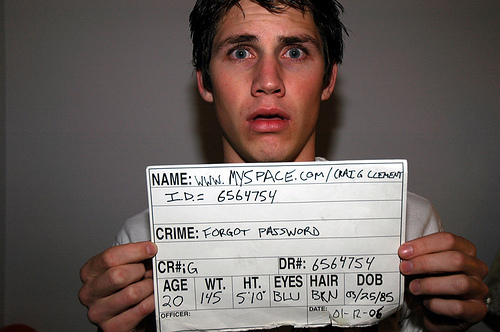 NAME: WWW.MYSPACE.COM/CRAIGCLEMENT
I.D.= 6564754
CRIME: FORGOT PASSWORD
CR#: G DR#: 6564754
AGE WT. HT. EYES HAIR DOB
20 145 5'10" BLU BRN 03/25/85
OFFICER: DATE: 01-12-06